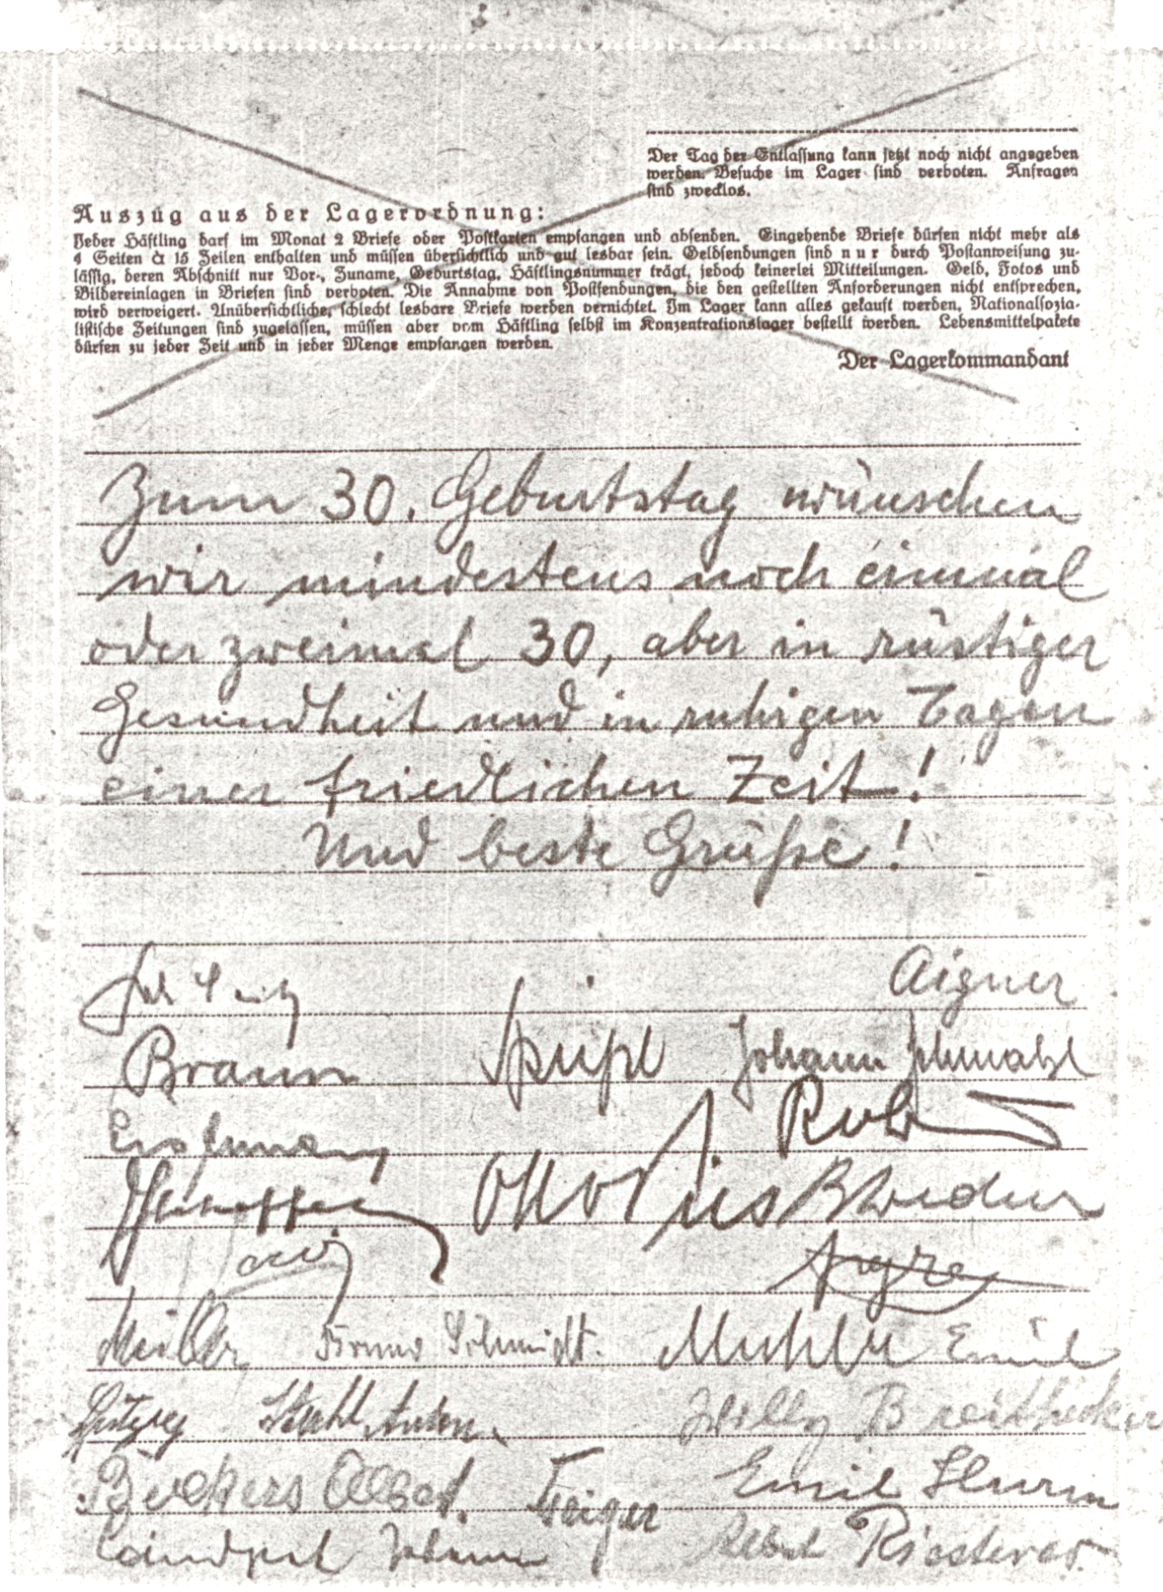 Der Tag der Entlassung kann jetzt noch nicht angegeben
werden. Besuche im Lager sind verboten. Anfragen
sind zwecklos.
Auszug aus der Lagerordnung:
Jeder Häftling darf im Monat 2 Briefe oder Postkarten empfangen und absenden. Eingehende Briefe dürfen nicht mehr als
4 Seiten à 15 Zeilen enthalten und müssen übersichtlich und gut lesbar sein. Geldsendungen sind nur durch Postanweisung zu-
lässig, deren Abschnitt nur Vor-, Zuname, Geburtstag, Häftlingsnummer trägt, jedoch keinerlei Mitteilungen. Geld, Fotos und
Bildereinlagen in Briefen sind verboten. Die Annahme von Postsendungen, die den gestellten Anforderungen nicht entsprechen,
wird verweigert. Unübersichtliche, schlecht lesbare Briefe werden vernichtet. Im Lager kann alles gekauft werden, Nationalsozia-
listische Zeitungen sind zugelassen, müssen aber vom Häftling selbst im Konzentrationslager bestellt werden. Lebensmittelpakete
dürfen zu jeder Zeit und in jeder Menge empfangen werden.
Der Lagerkommandant
Zum 30. Geburtstag wünschen
wir mindestens noch einmal
oder zweimal 30, aber in rüstiger
Gesundheit und in ruhigen Tagen
einer friedlichen Zeit!
Und beste Grüße!
Aigner
Braun Johann
Rob
Otto
Müller Bruno Schmidt. Emil
Stahl Anton. Willy
Beckers Geiger Emil Sturm
Johann Riesterer